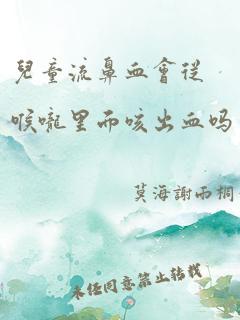 兒童流鼻血會從
喉嚨里而咳出血吗
莫海謝雨桐
未经同意禁止转载